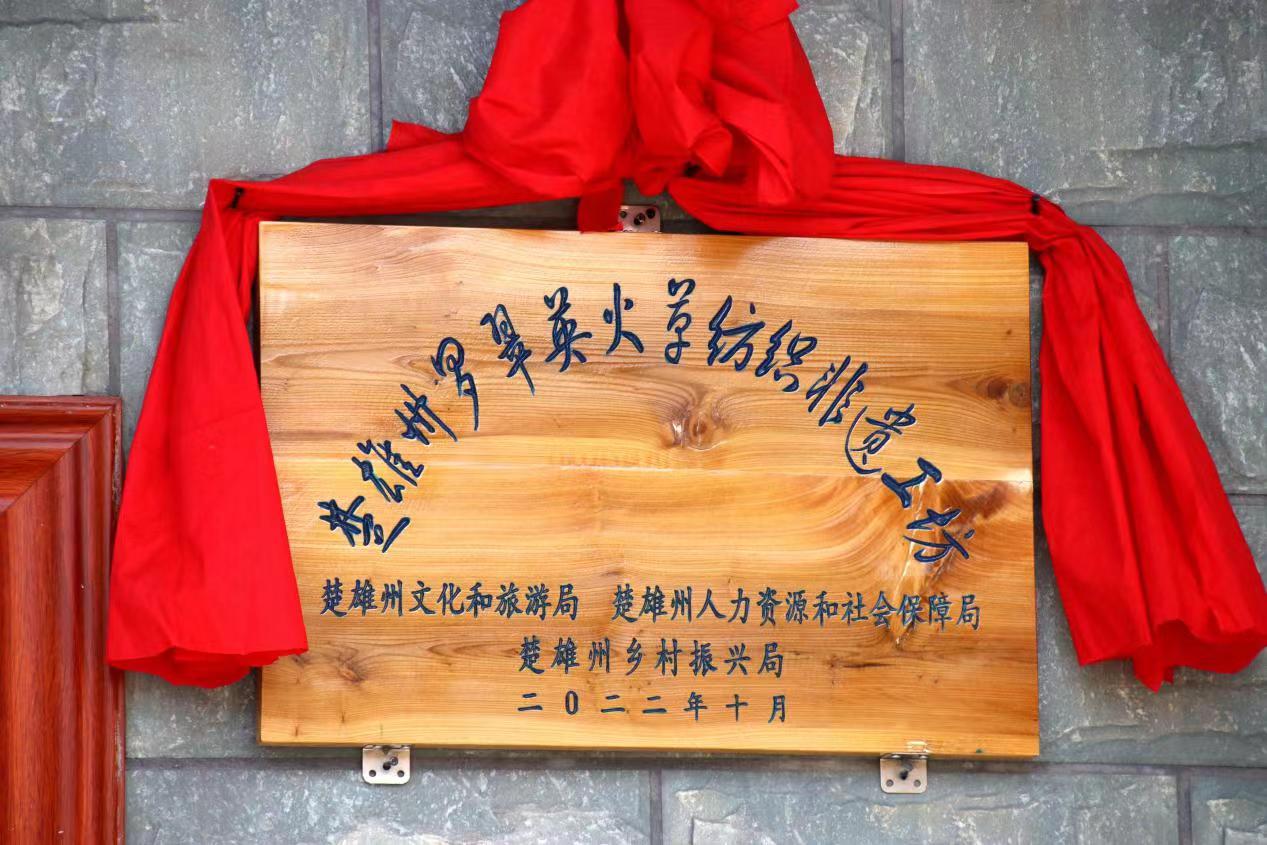 楚雄州罗翠英火草纺织非遗工坊
楚雄州文化和旅游局 楚雄州人力资源和社会保障局
楚雄州乡村振兴局
二0二二年十月